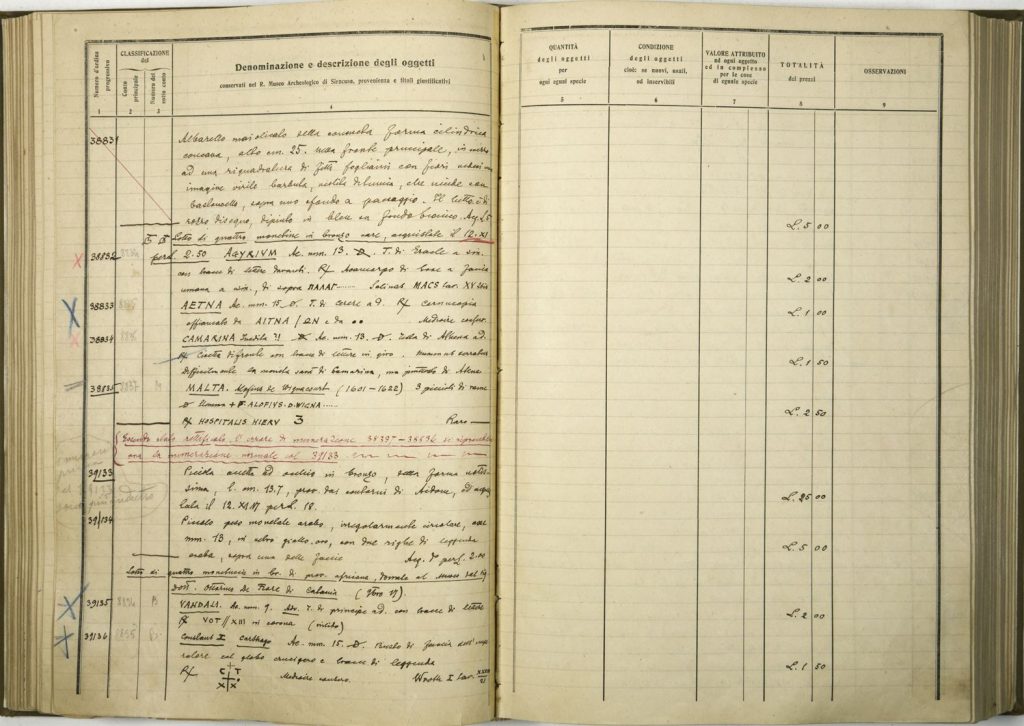 Numero d'ordine progressivo
CLASSIFICAZIONE del
Conto principale
Numero del sotto conto
Denominazione e descrizione degli oggetti
conservati nel R. Museo Archeologico di Siracusa, provenienza e titoli giustificativi
1
2
3
4
38831
Albarello maiolicato della consueta forma cilindrica
concava, alto cm. 25. Nella fronte principale, in mezzo
ad una riquadratura di fitti fogliami con fiori
imagine virile barbuta, vestita di tunica, che incede con
bastoncello, sopra uno sfondo a paesaggio. Il tutto è di
rozzo disegno, dipinto in bleu su fondo bianco. Acq. L. 5
Lotto di quattro monetine in bronzo rare, acquistate il 12. XI
38832
per L. 2.50 AGYRIUM Ae. mm. 13. D. T. di Eracle a sin.
con tracce di lettere davanti. R/ Avancorpo di bove a faccia
umana a sin., di sopra ΠΑΛΑΓ..... Salinas MACS tav. XV
38833
AETNA Ae. mm. 15. D. T. di cerere a d. R/ cornucopia
affiancata da AITNA / ΩN e da •• Mediocre conserv.
38834
CAMARINA Inedita?! Ae. mm. 13. D. Testa di Athena a d.
R/ Civetta di fronte con tracce di lettere in giro.
difficilmente la moneta sarà di Camarina, ma piuttosto di Atene
38835
8837
MALTA. Alofius de Wignacourt (1601-1622) 3 piccioli di rame
D Stemma + F. ALOFIVS. D. WIGNA.....
R/ HOSPITALIS HIERV 3 Raro
Essendo stato rettificato l'errore di numerazione 38397-38836 si riprende
ora la numerazione normale col 39133
39133
Piccola accetta ad occhio in bronzo, della forma
sima, l. cm. 13.7, prov. dai contorni di Aidone, ed acqui
stata il 12. XI 17 per L. 18.
39134
Piccolo peso monetale arabo, irregolarmente circolare,
mm. 13, in vetro giallo-oro, con due righe di leggenda
araba, sopra una delle faccie Acq. per L. 2.00
Lotto di quattro monetuccie in br. di prov. africana, donate al Museo dal Sig.
Dott. Ottorino De Fiore di Catania
39135
B
VANDALI. Ae. mm. 9. T. di principe a d. con tracce di lettere
R/ VOT // XIII in corona (inedito)
39136
8895
Constant I Carthago Ae. mm. 15. D. Busto di faccia dell'impe
ratore col globo crucigero e tracce di leggenda
R/ C T X X Mediocre conserv. Wroth I tav. XXXIII 21
QUANTITÀ degli oggetti per ogni egual specie
CONDIZIONE degli oggetti cioè: se nuovi, usati, od inservibili
VALORE ATTRIBUITO ad ogni oggetto ed in complesso per le cose di eguale specie
TOTALITÀ dei prezzi
OSSERVAZIONI
5
6
7
8
9
L. 5 00
L. 2 00
L. 1 00
L. 1 50
L. 2 50
L. 25 00
L. 5 00
L. 2 00
L. 1 50